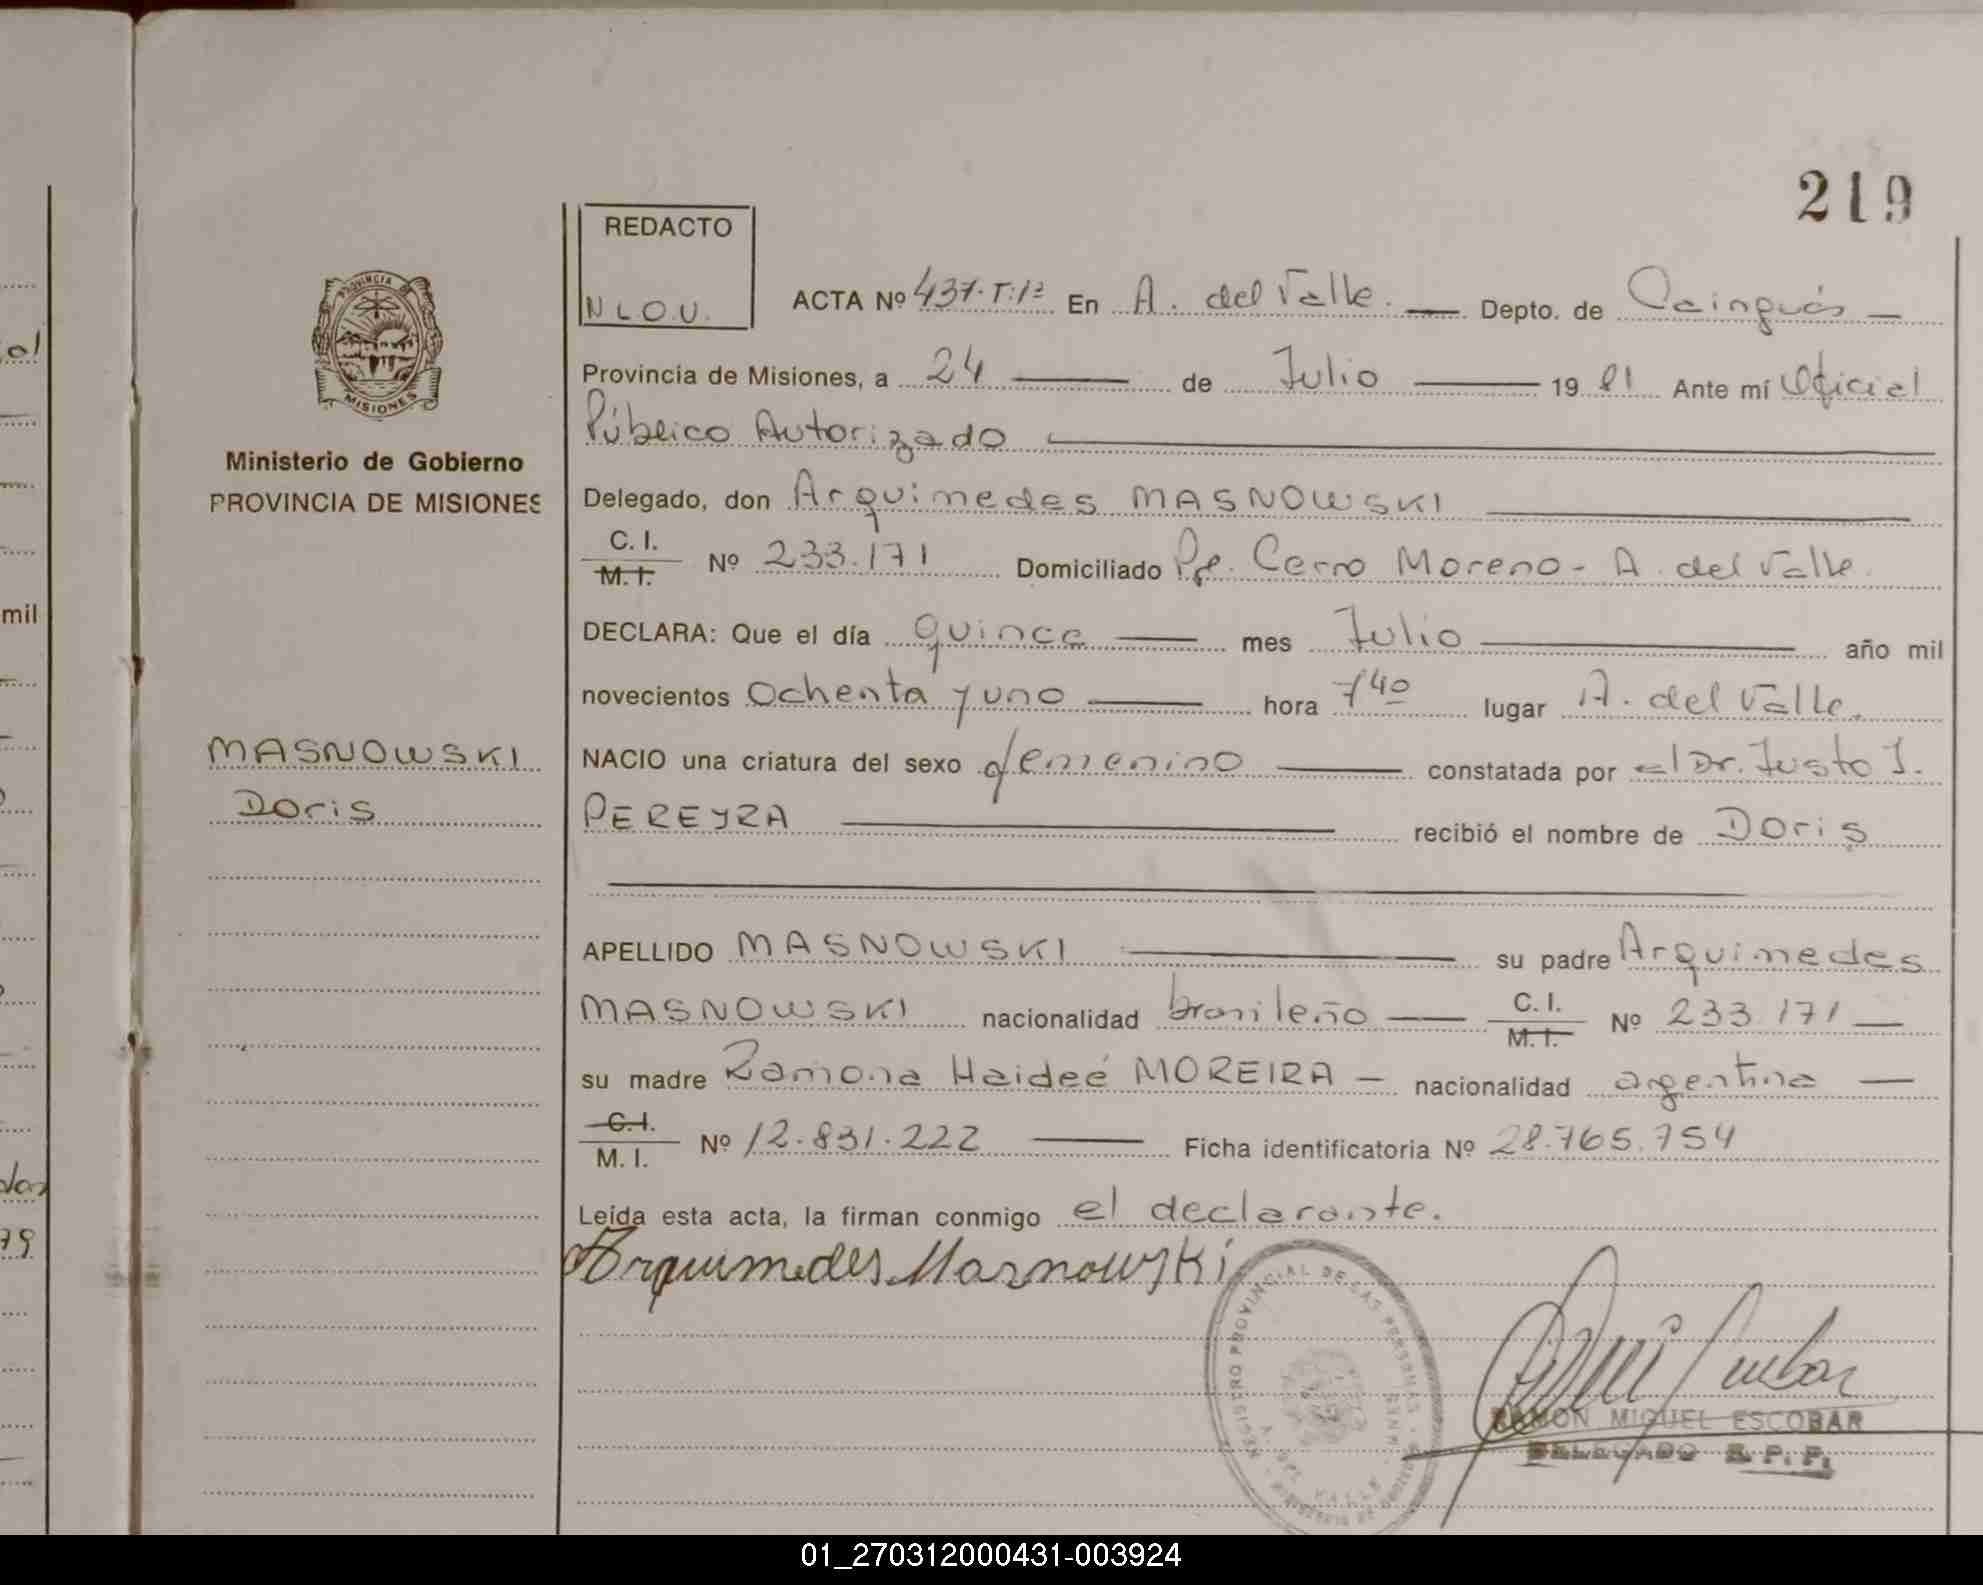 219
REDACTO
N L O.U.
PROVINCIA DE
MISIONES
Ministerio de Gobierno
PROVINCIA DE MISIONES
ACTA Nº 437.T:1º En A. del Valle. Depto. de Cainguás
Provincia de Misiones, a 24 de Julio 19 81 Ante mí Oficial
Público Autorizado
Delegado, don Arquimedes MASNOWSKI
C. I.
M. I. Nº 233.171 Domiciliado Pje. Cerro Moreno - A. del Valle.
DECLARA: Que el día quince mes Julio año mil
novecientos Ochenta y uno hora 7 40 lugar A. del Valle.
MASNOWSKI
Doris
NACIO una criatura del sexo femenino constatada por el Dr. Justo J.
PEREYRA recibió el nombre de Doris
APELLIDO MASNOWSKI su padre Arquimedes
MASNOWSKI nacionalidad brasileño C. I. M. I. Nº 233.171
su madre Ramona Haideé MOREIRA nacionalidad argentina
C. I.
M. I. Nº 12.831.222 Ficha identificatoria Nº 28.765.754
Leída esta acta, la firman conmigo el declarante.
Arquimedes Masnowski
REGISTRO PROVINCIAL DE LAS PERSONAS
RAMON MIGUEL ESCOBAR
DELEGADO R. P. P.
ol
mil
79
01_270312000431-003924